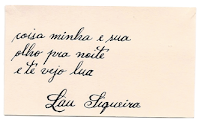 coisa minha e sua
olho pra noite
e te vejo lua
Lau Siqueira